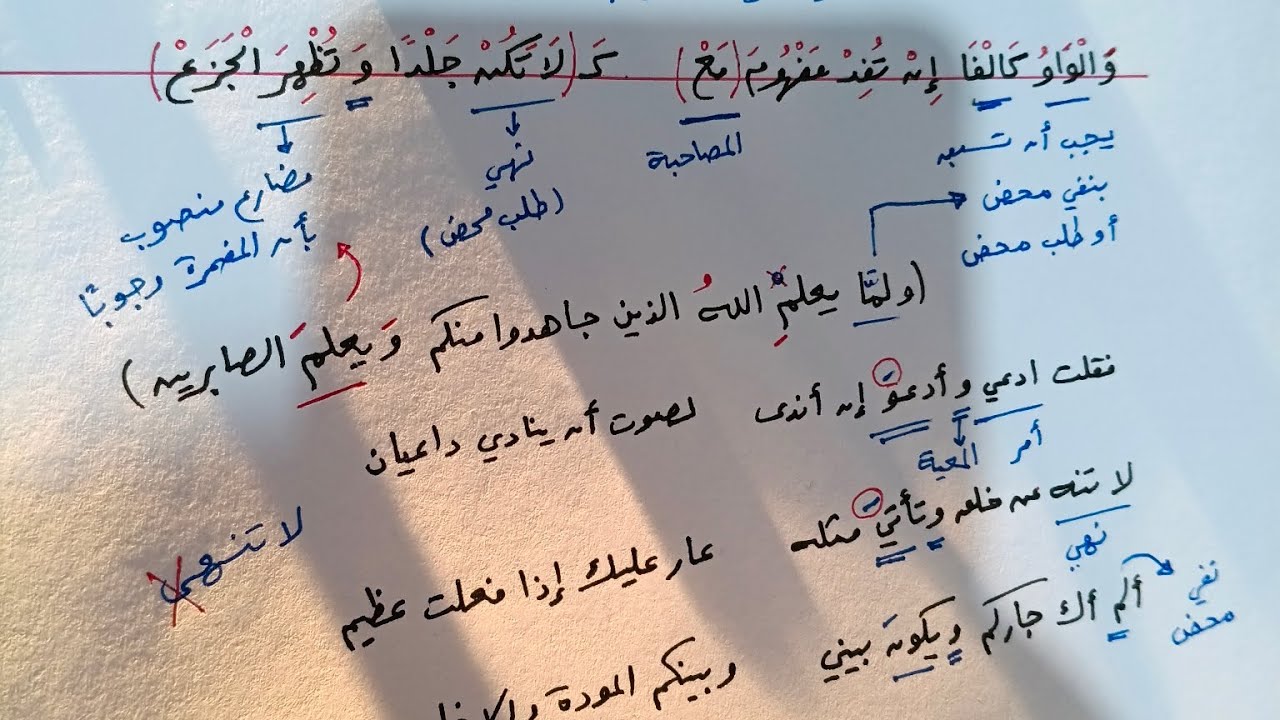 وَالْوَاوُ كَالْفَا إِنْ تُفِدْ مَفْهُومَ (مَعْ) كَـ (لَا تَكُنْ جَلْدًا وَتُظْهِرَ الْجَزَعْ)
يجب أن تسبق
بنفي محض
أو طلب محض
المصاحبة
نهي
(طلب محض)
مضارع منصوب
بأن المضمرة وجوبًا
(ولمَّا يعلمِ اللهُ الذين جاهدوا منكم وَيعلمَ الصابرين)
فقلت ادعي وأدعوَ إن أندى لصوت أن ينادي داعيان
أمر المعية
لا تنه عن خلق وتأتيَ مثله عار عليك إذا فعلت عظيم
نهي
لا تنهى
ألم أك جاركم ويكونَ بيني وبينكم المودة
نفي
محض